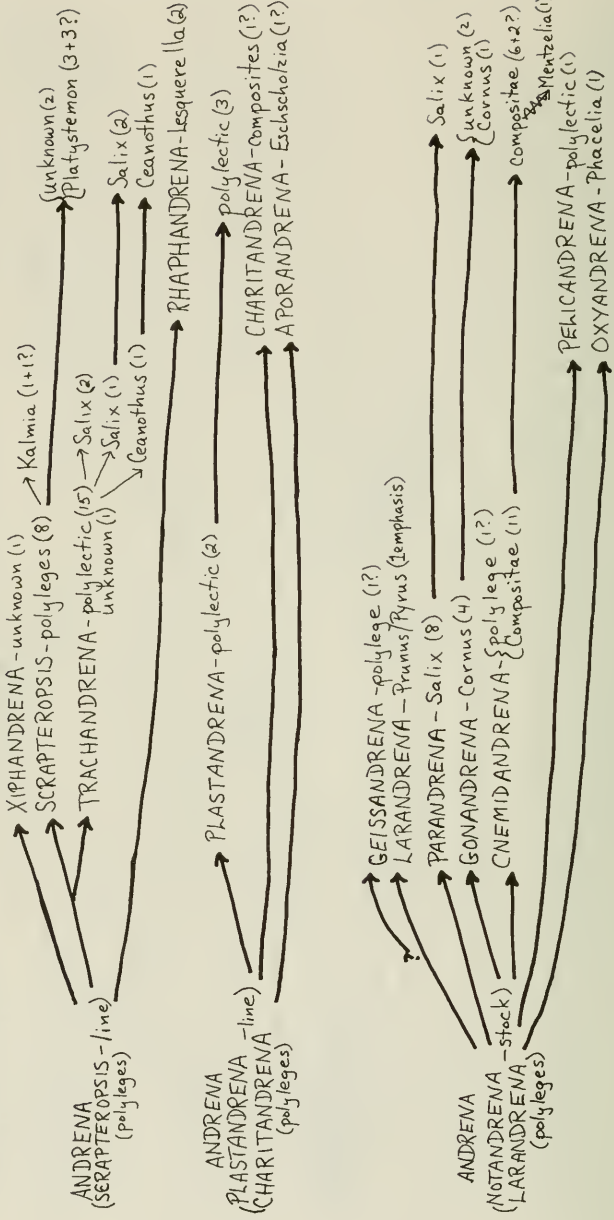 ANDRENA
(SCRAPTEROPSIS-line)
(polyleges)
XIPHANDRENA-unknown (1)
SCRAPTEROPSIS-polyleges (8)
Kalmia (1+1?)
{unknown (2)
Platystemon (3+3?)
TRACHANDRENA-polylectic (15)
unknown (1)
Salix (2)
Salix (1)
Ceanothus (1)
Salix (2)
Ceanothus (1)
RHAPHANDRENA-Lesquerella (2)
ANDRENA
(PLASTANDRENA -line)
CHARITANDRENA
(polyleges)
PLASTANDRENA-polylectic (2)
polylectic (3)
CHARITANDRENA-composites (1?)
APORANDRENA-Eschscholzia (1?)
ANDRENA
(NOTANDRENA -stock)
LARANDRENA
(polyleges)
?
GEISSANDRENA-polylege (1?)
LARANDRENA-Prunus/Pyrus (1emphasis)
PARANDRENA-Salix (8)
Salix (1)
GONANDRENA-Cornus (4)
{unknown (2)
Cornus (1)
CNEMIDANDRENA-{polylege (1?)
Compositae (11)
Compositae (6+2?)
Mentzelia (1)
PELICANDRENA-polylectic (1)
OXYANDRENA-Phacelia (1)